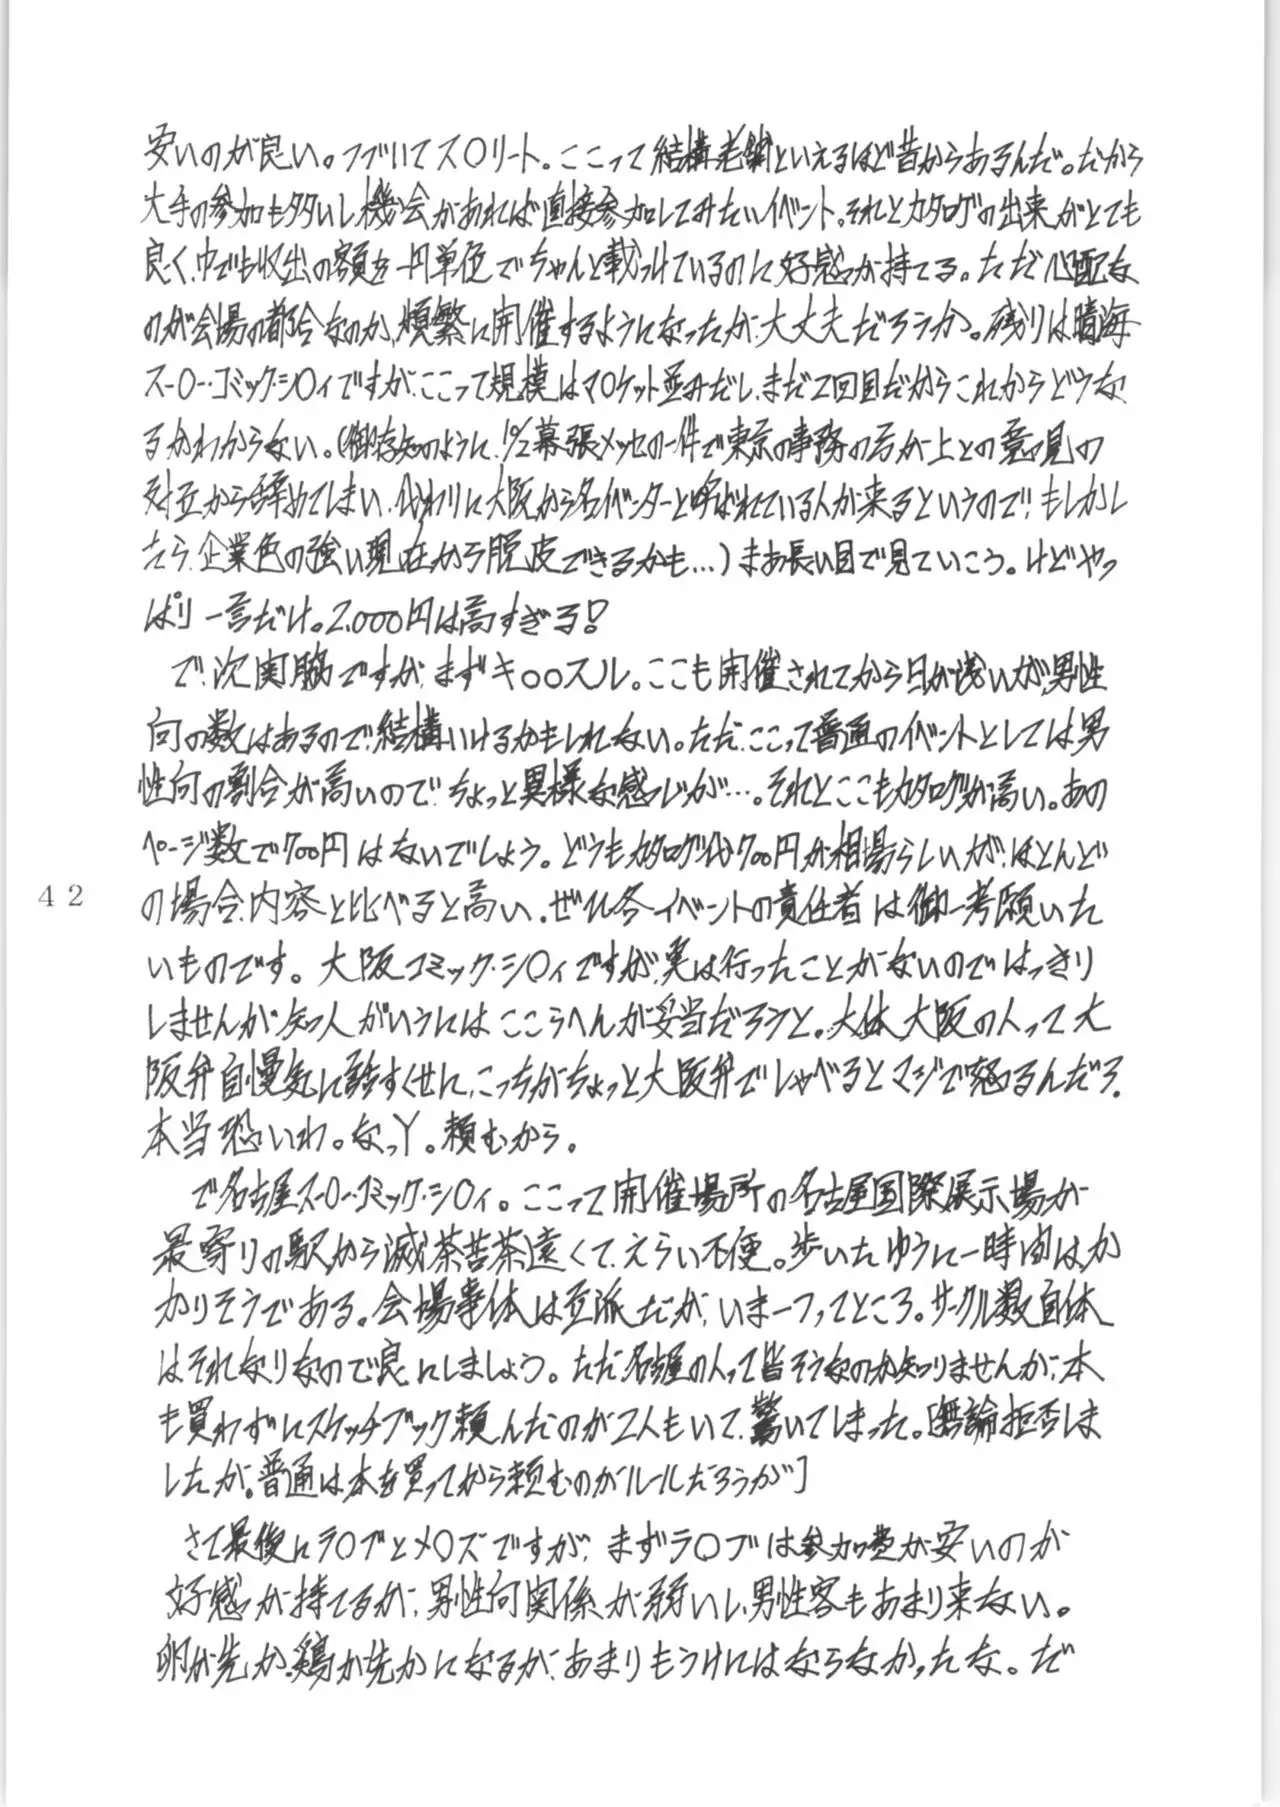 安いのが良い。つづいてス〇リート。ここって結構老舗といえるほど昔からあるんだ。だから
大手の参加も多いし機会があれば直接参加してみたいイベント。それとカタログの出来がとても
良く、中でも収出の額を一円単色でちゃんと載っけているのに好感が持てる。ただ心配な
のが会場の都合なのか、頻繁に開催するようになったが、大丈夫だろうか。残りは晴海
ス-〇-・コミック・シ〇ィですが、ここって規模はマ〇ケット並みだし、まだ2回目だからこれからどうな
るかわからない。(御存知のように、幕張メッセの一件で東京の事務の方が上との意見の
対立から辞めてしまい、代わりに大阪から名イベンターと呼ばれている人が来るというので!もしかし
たら、企業色の強い現在から脱皮できるかも…)まあ長い目で見ていこう。けどやっ
ぱり一言だけ。2,000円は高すぎる!
で、次、実脇ですが、まずキ〇〇スル。ここも開催されてから日が浅いが、男性
向の数はあるので、結構いけるかもしれない。ただ、ここって普通のイベントとしては男
性向の割合が高いので、ちょっと異様な感じが…。それとここもカタログが高い。あの
ページ数で700円はないでしょう。どうもカタログ代700円が相場らしいが、ほとんど
の場合、内容と比べると高い。ぜひ各イベントの責任者は御一考願いた
いものです。大阪コミック・シ〇ィですが、実は行ったことがないのではっきり
しませんが、知人がいうにはここらへんが妥当だろうと。大体大阪の人って大
阪弁自慢気に話すくせに、こっちがちょっと大阪弁でしゃべるとマジで怒るんだろ。
本当恐いわ。なっY。頼むから。
で名古屋ス-〇-・コミック・シ〇ィ。ここって開催場所の名古屋国際展示場が
最寄りの駅から滅茶苦茶遠くて、えらい不便。歩いたらゆうに一時間はか
かりそうである。会場事体は立派だが、いま一つってところ。サークル数自体
はそれなりなので良しにしましょう。ただ名古屋の人って皆そうなのか知りませんが、本
も買わずにスケッチブック頼んだのが2人もいて、驚いてしまった。[無論拒否しま
したが。普通は本を買ってから頼むのがルールだろうが]
さて最後にラ〇ブとメ〇ズですが、まずラ〇ブは参加費が安いのが
好感が持てるが、男性向関係が弱いし、男性客もあまり来ない。
卵が先か、鶏が先かになるが、あまりもうけにはならなかったな。だ
42